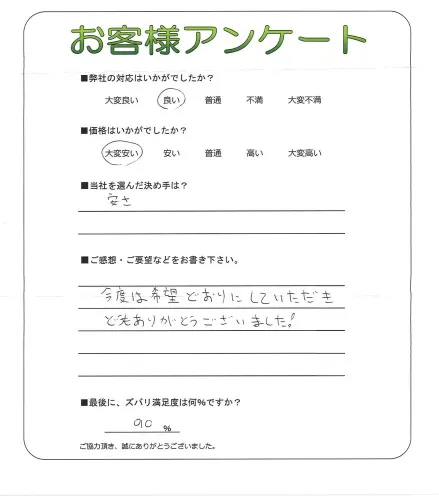 お客様アンケート
■弊社の対応はいかがでしたか？
大変良い 良い 普通 不満 大変不満
■価格はいかがでしたか？
大変安い 安い 普通 高い 大変高い
■当社を選んだ決め手は？
安さ
■ご感想・ご要望などをお書き下さい。
今度は希望どおりにしていただき
どうもありがとうございました!
■最後に、ズバリ満足度は何％ですか？
90 ％
ご協力頂き、誠にありがとうございました。